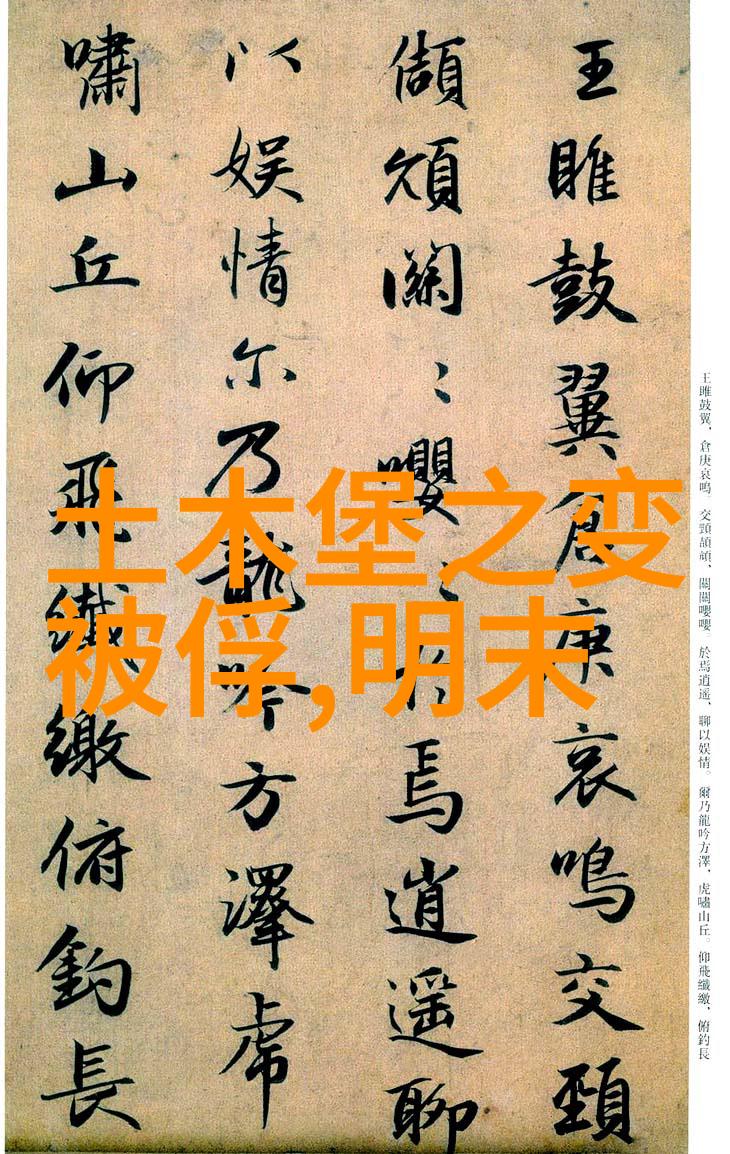 王雎鼓翼倉庚哀鳴交頸
頡頏關〻嚶〻於焉逍遥聊
以娱情尔乃龍吟方澤虎
嘯山丘仰飛纖繳俯釣長
土木堡之变
被俘,明末
王雎鼓翼、倉庚哀鳴。交頸頡頏、關關嚶嚶。於焉逍遥、聊以娱情。爾乃龍吟方澤、虎嘯山丘。仰飛纖繳、俯釣長